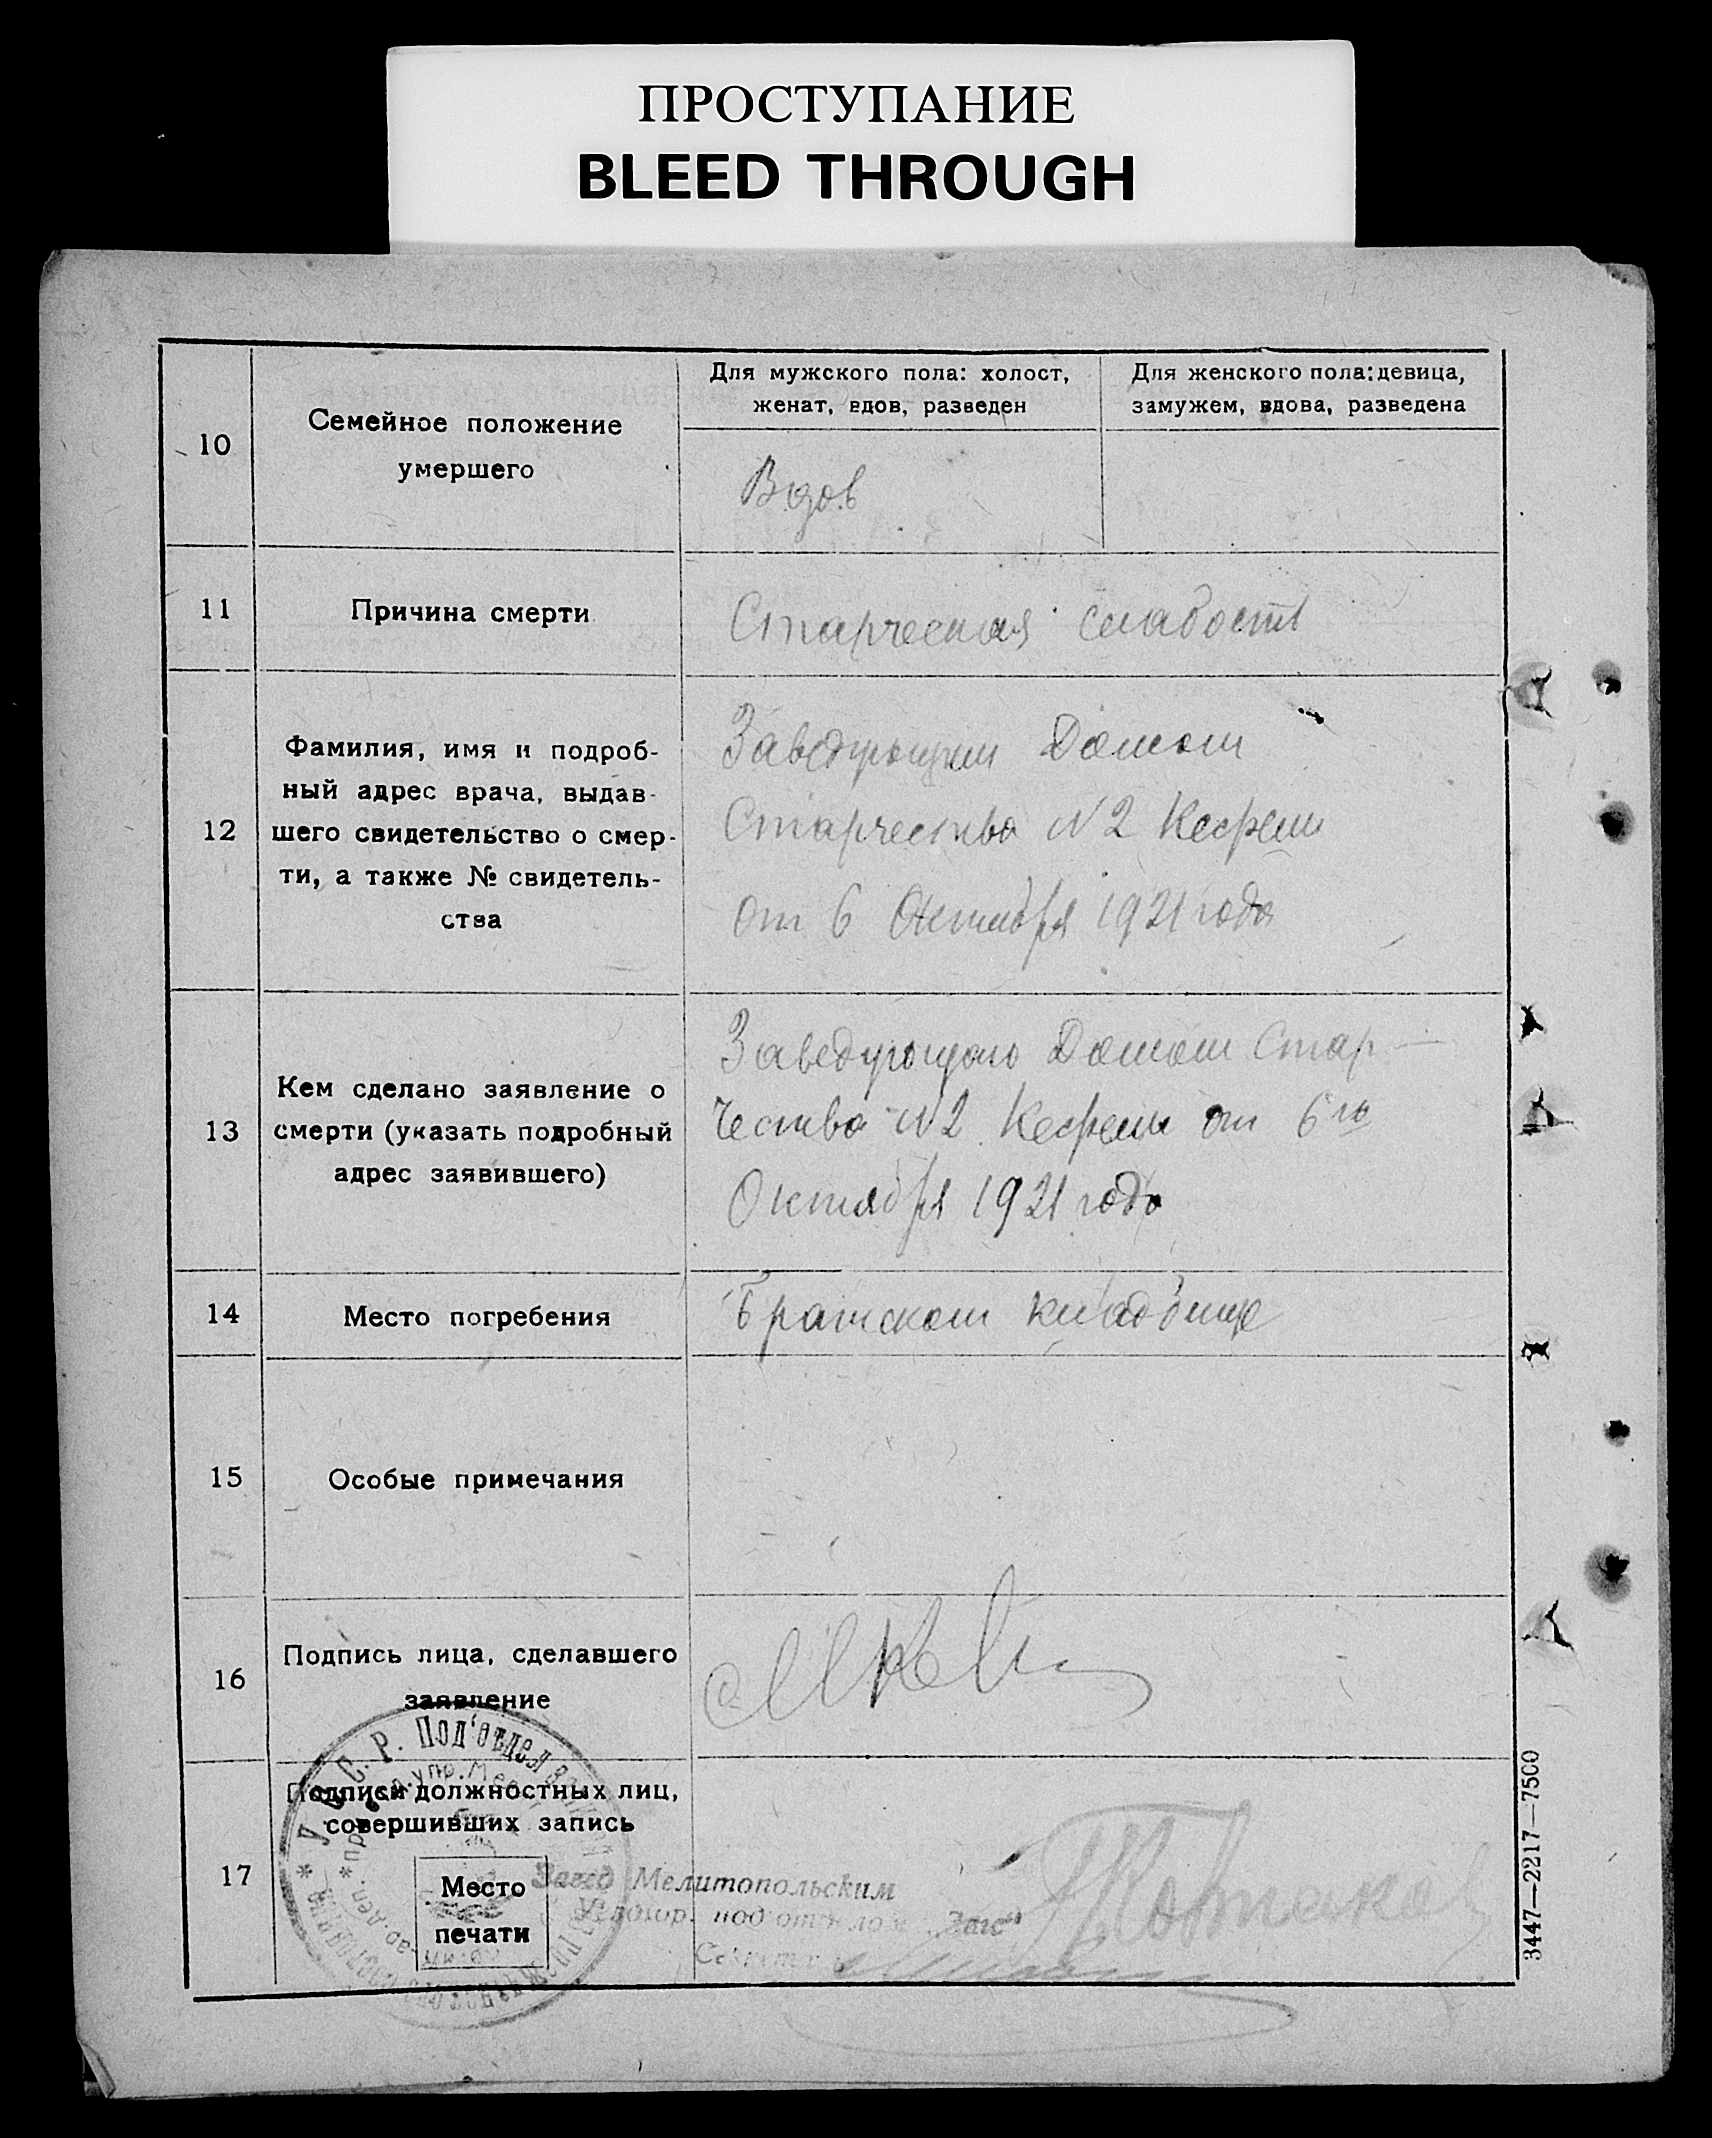 ПРОСТУПАНИЕ
BLEED THROUGH
10
Семейное положение
умершего
Для мужского пола: холост,
женат, вдов, разведен
Для женского пола: девица,
замужем, вдова, разведена
Вдов
11
Причина смерти
Старческая слабость
12
Фамилия, имя и подроб-
ный адрес врача, выдав-
шего свидетельство о смер-
ти, а также № свидетель-
ства
Заведующим Домом
Старчества N2
от 6 Октября 1921 года
13
Кем сделано заявление о
смерти (указать подробный
адрес заявившего)
Заведующаго Домом Стар-
чества N2 от 6го
Октября 1921 года
14
Место погребения
Братском кладбище
15
Особые примечания
16
Подпись лица, сделавшего
заявление
17
Подписи должностных лиц,
совершивших запись
Место
печати
У. С. С. Р. Под'отдел
Завед Мелитопольским
под'отделом „Загс"
3447—2217—7500